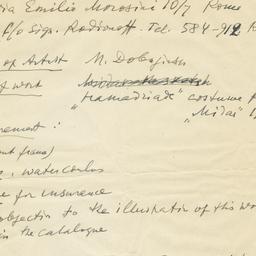 ia Emilio Morosini 10/7 Rome
c/o Sign. Rodionoff. Tel. 584-912
of Artist M. Dobujinsky
of work
"Hamadriade" costume f
"Midas" 1
rement:
out frame)
e, watercolor
e for insurance
objection to the illustration of this wo
in the catalogue